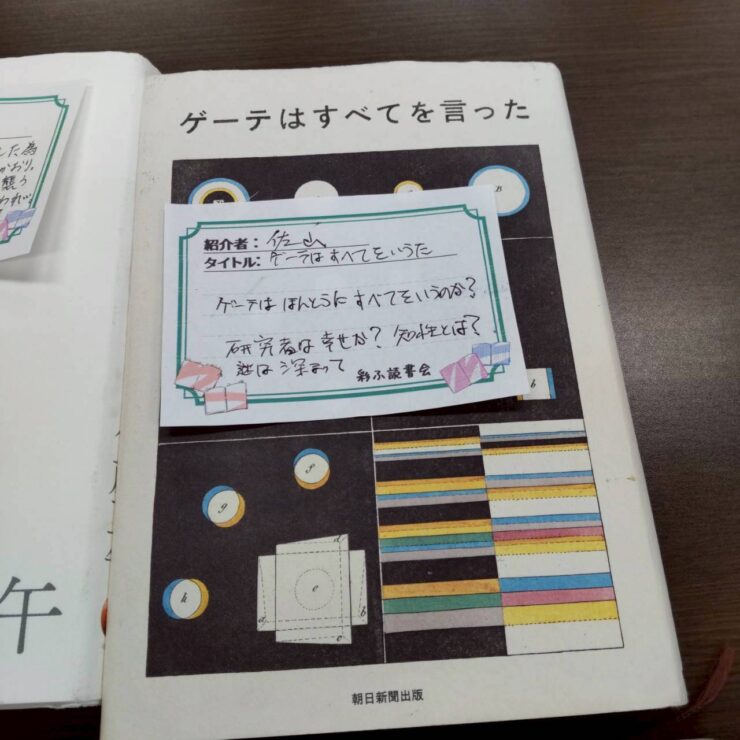 した為
がおり。
襲う
われい
午
ゲーテはすべてを言った
B
紹介者: 佐山
タイトル: ゲーテはすべてをいうた
ゲーテは ほんとうに すべてをいうのか?
研究者は 幸せか? 知性とは?
謎は 深まって
彩ふ読書会
b
f
g
h
d
e
a
b
c
朝日新聞出版